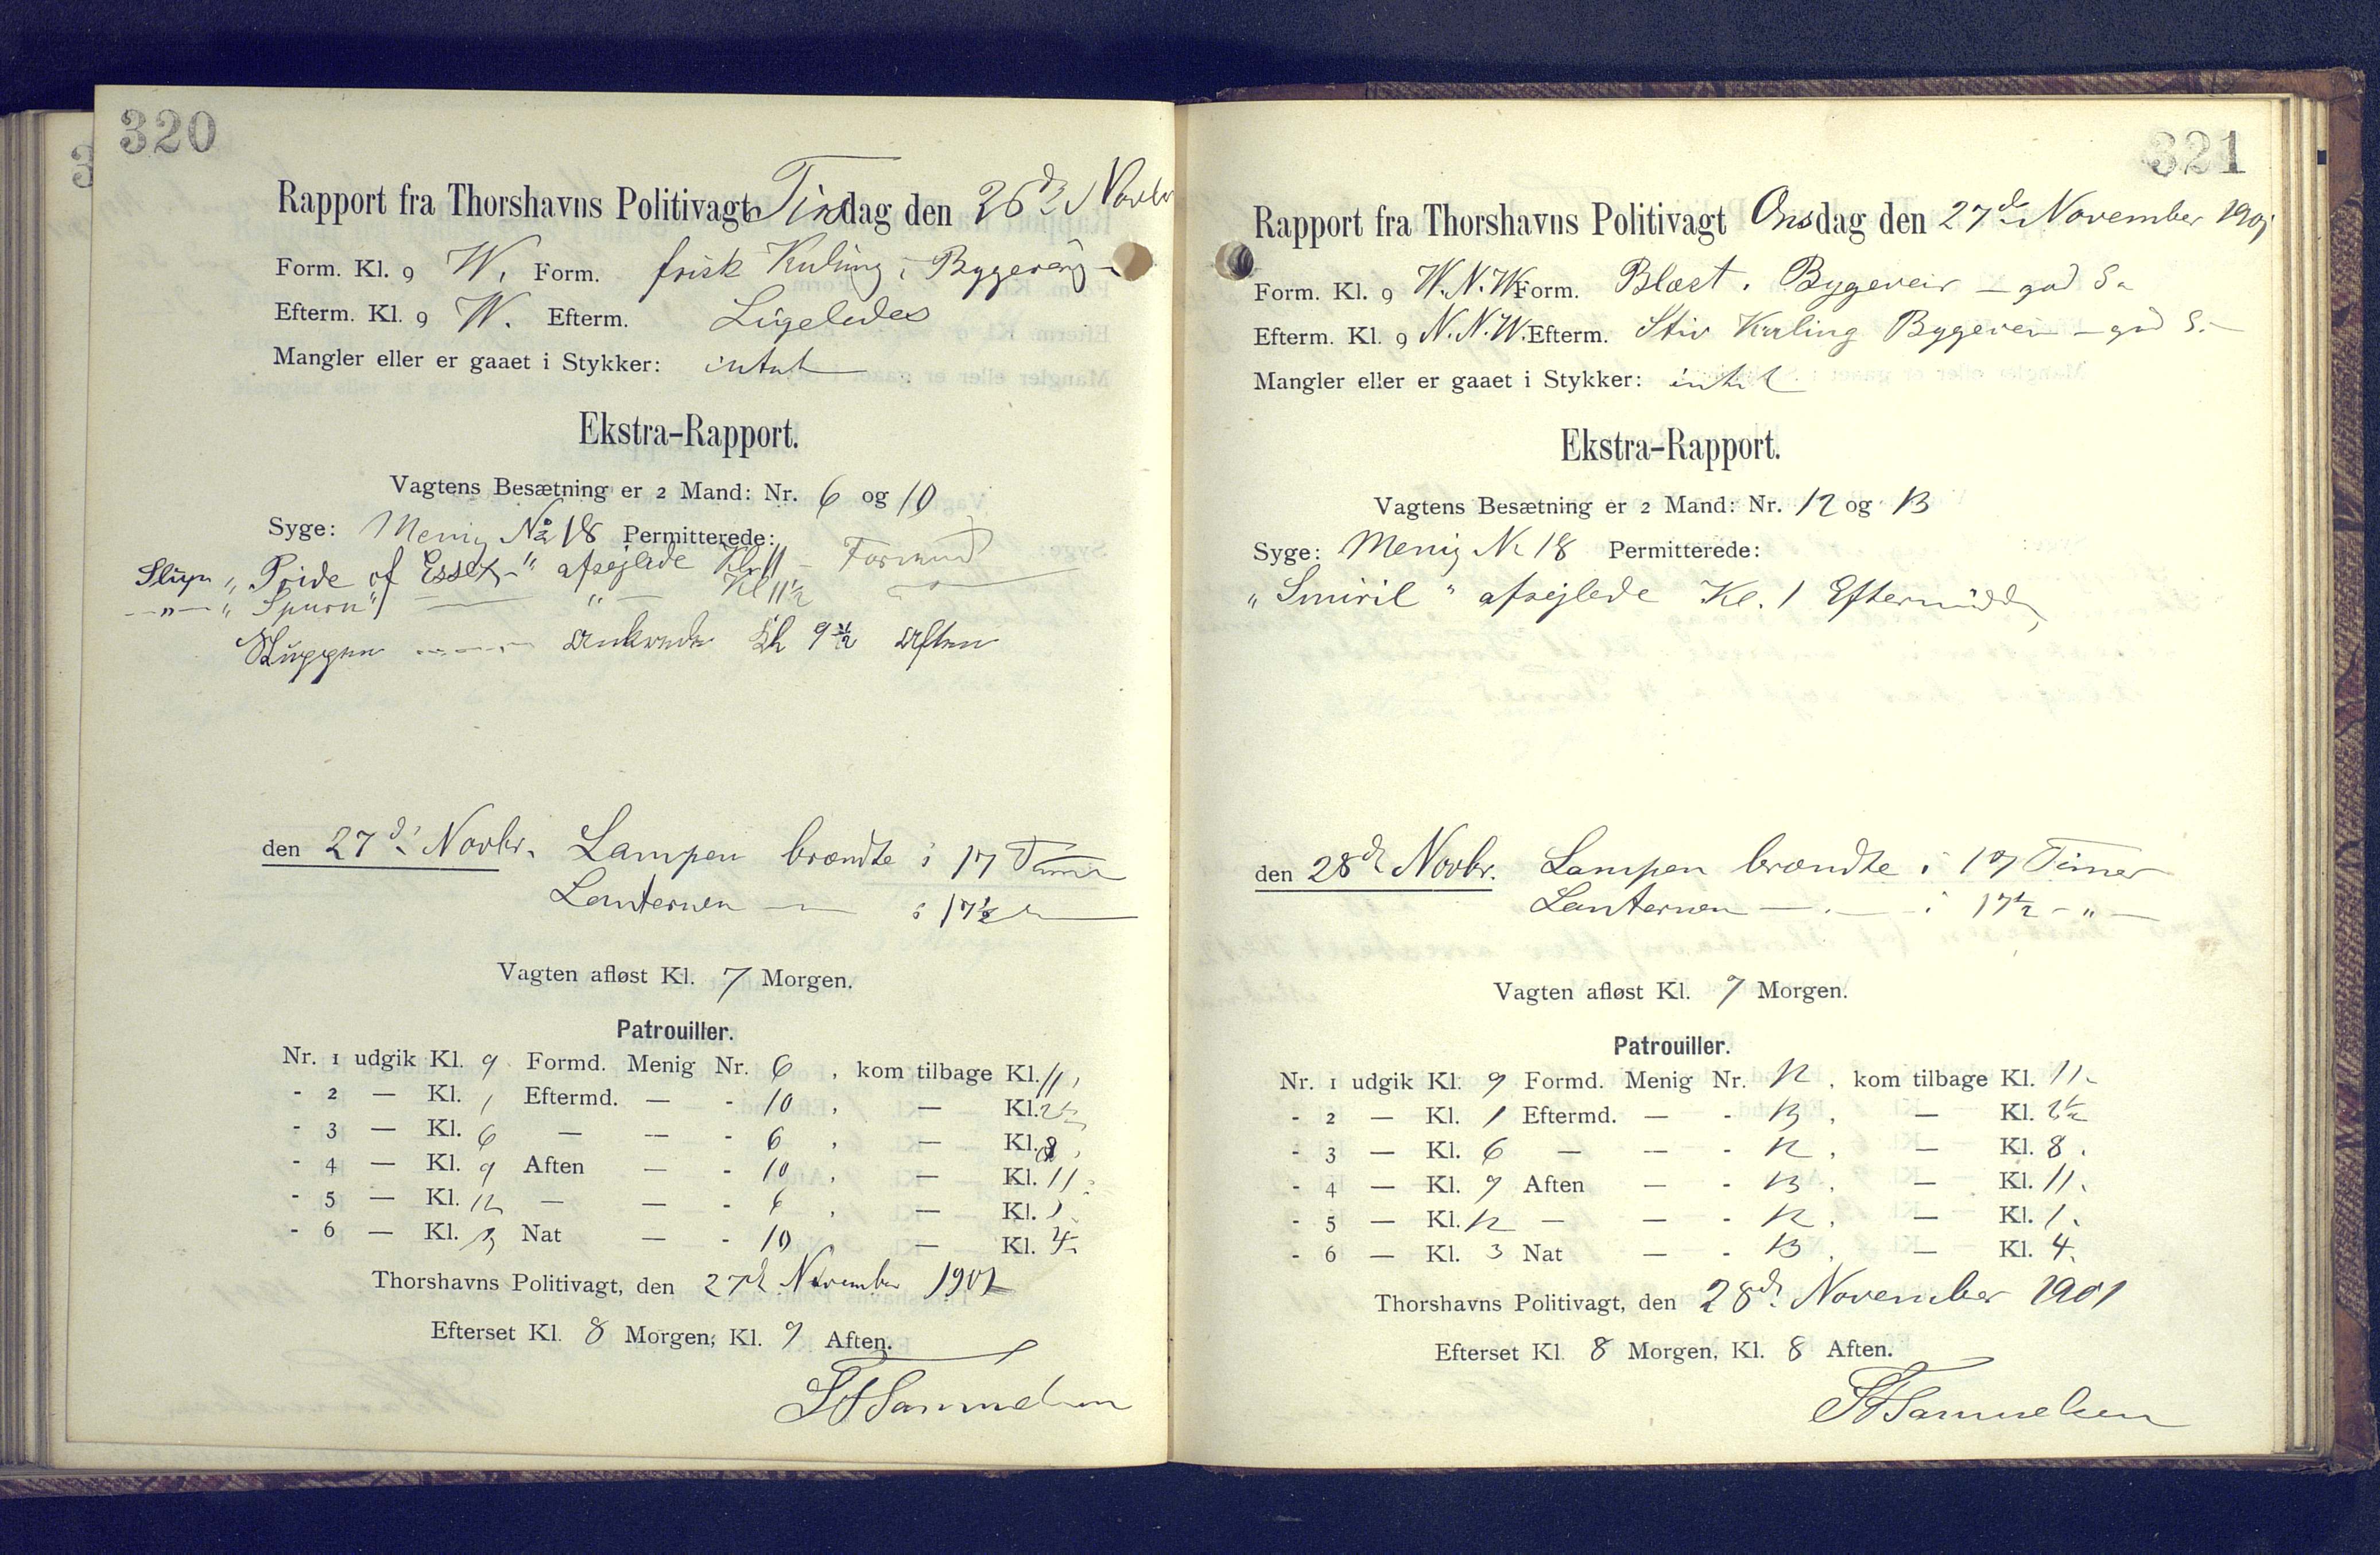 320
Rapport fra Thorshavns Politivagt Tirsdag den 26d Novbr
Form. Kl. 9 W. Form. frisk Kuling, Byggevejr
Efterm. Kl. 9 W. Efterm. Ligeledes
Mangler eller er gaaet i Stykker: intet
Ekstra-Rapport.
Vagtens Besætning er 2 Mand: Nr. 6 og 10
Syge: Menig No 18 Permitterede:
Slup „Pride of Essex" afsejlede Kl. 11 Formid
—"— „Spurn" — " — Kl 11½
Sluppen ankrede Kl 9½ Aften
den 27d Novbr. Lampen brændte i 17 Timer
Lanternen — i 17½
Vagten afløst Kl. 7 Morgen.
Patrouiller.
Nr. 1 udgik Kl. 9 Formd. Menig Nr. 6, kom tilbage Kl. 11,
- 2 — Kl. 1 Eftermd. — - 10, — Kl. 2½
- 3 — Kl. 6 — — - 6, — Kl. 8,
- 4 — Kl. 9 Aften — - 10, — Kl. 11.
- 5 — Kl. 12 — — - 6, — Kl. 1
- 6 — Kl. 3 Nat — - 10 — Kl. 4.
Thorshavns Politivagt, den 27d November 1901
Efterset Kl. 8 Morgen, Kl. 9 Aften.
Samuelsen
321
Rapport fra Thorshavns Politivagt Onsdag den 27de November 1901
Form. Kl. 9 W.N.W. Form. Blæst. Bygeveir — god S.
Efterm. Kl. 9 N.N.W. Efterm. Stiv Kuling Byggeveir — god S.
Mangler eller er gaaet i Stykker: intet
Ekstra-Rapport.
Vagtens Besætning er 2 Mand: Nr. 12 og 13
Syge: Menig Nr 18 Permitterede:
„Smiril" afsejlede Kl. 1 Eftermiddag
den 28d Novbr. Lampen brændte i 17 Timer
Lanternen — . — i 17½ - " -
Vagten afløst Kl. 7 Morgen.
Patrouiller.
Nr. 1 udgik Kl. 9 Formd. Menig Nr. 12, kom tilbage Kl. 11.
- 2 — Kl. 1 Eftermd. — - 13, — Kl. 2½
- 3 — Kl. 6 — — - 12, — Kl. 8.
- 4 — Kl. 9 Aften — - 13, — Kl. 11.
- 5 — Kl. 12 — — - 12, — Kl. 1.
- 6 — Kl. 3 Nat — - 13, — Kl. 4.
Thorshavns Politivagt, den 28d. November 1901
Efterset Kl. 8 Morgen, Kl. 8 Aften.
Samuelsen